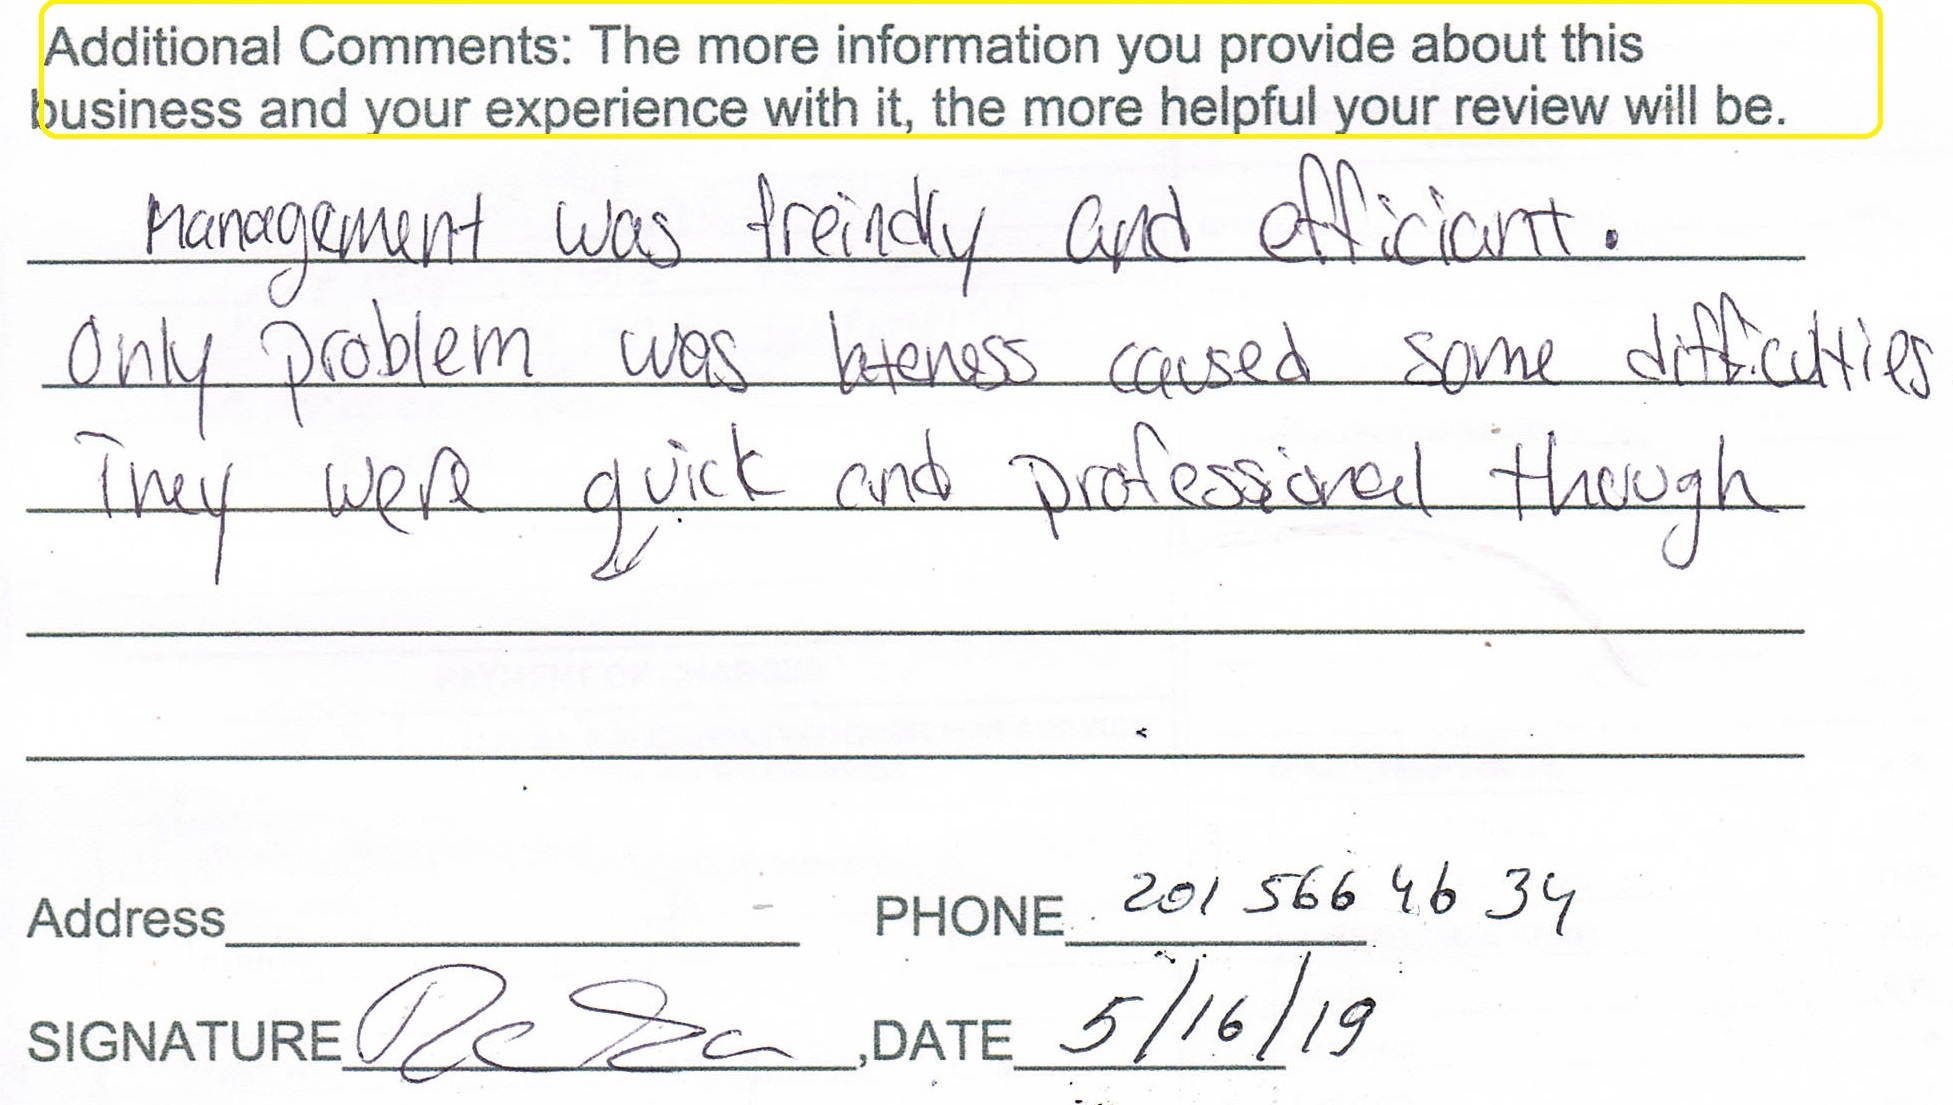 Additional Comments: The more information you provide about this
business and your experience with it, the more helpful your review will be.
Management was freindly and efficiant.
Only problem was lateness caused some difficulties
They were quick and professional though
Address PHONE 201 566 46 34
SIGNATURE ,DATE 5/16/19